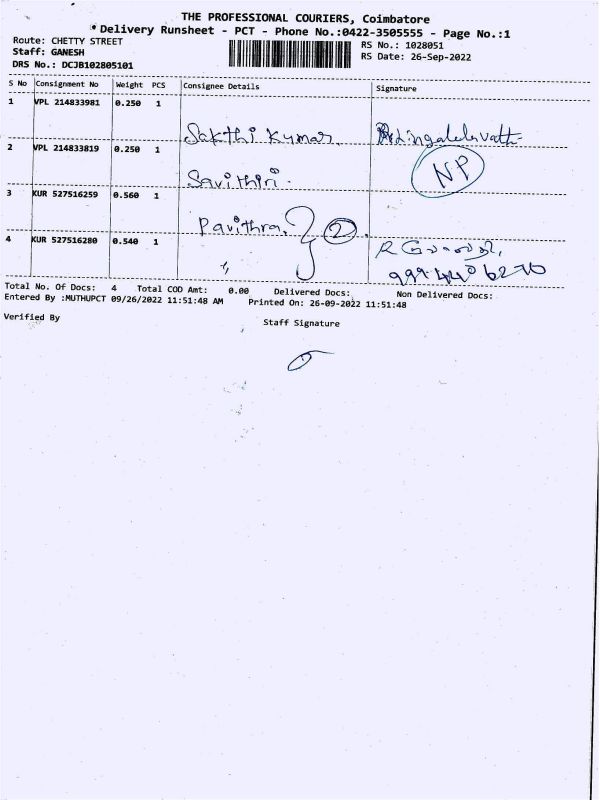 THE PROFESSIONAL COURIERS, Coimbatore
Delivery Runsheet - PCT - Phone No.:0422-3505555 - Page No.:1
Route: CHETTY STREET
RS No.: 1028051
Staff: GANESH
RS Date: 26-Sep-2022
DRS No.: DCJB102805101
S No Consignment No Weight PCS Consignee Details Signature
1 VPL 214833981 0.250 1
Sakthi Kumar.
2 VPL 214833819 0.250 1
Savithiri. NP
3 KUR 527516259 0.560 1
Pavithra, 2
4 KUR 527516280 0.540 1
Total No. Of Docs: 4 Total COD Amt: 0.00 Delivered Docs: Non Delivered Docs:
Entered By :MUTHUPCT 09/26/2022 11:51:48 AM Printed On: 26-09-2022 11:51:48
Verified By
Staff Signature